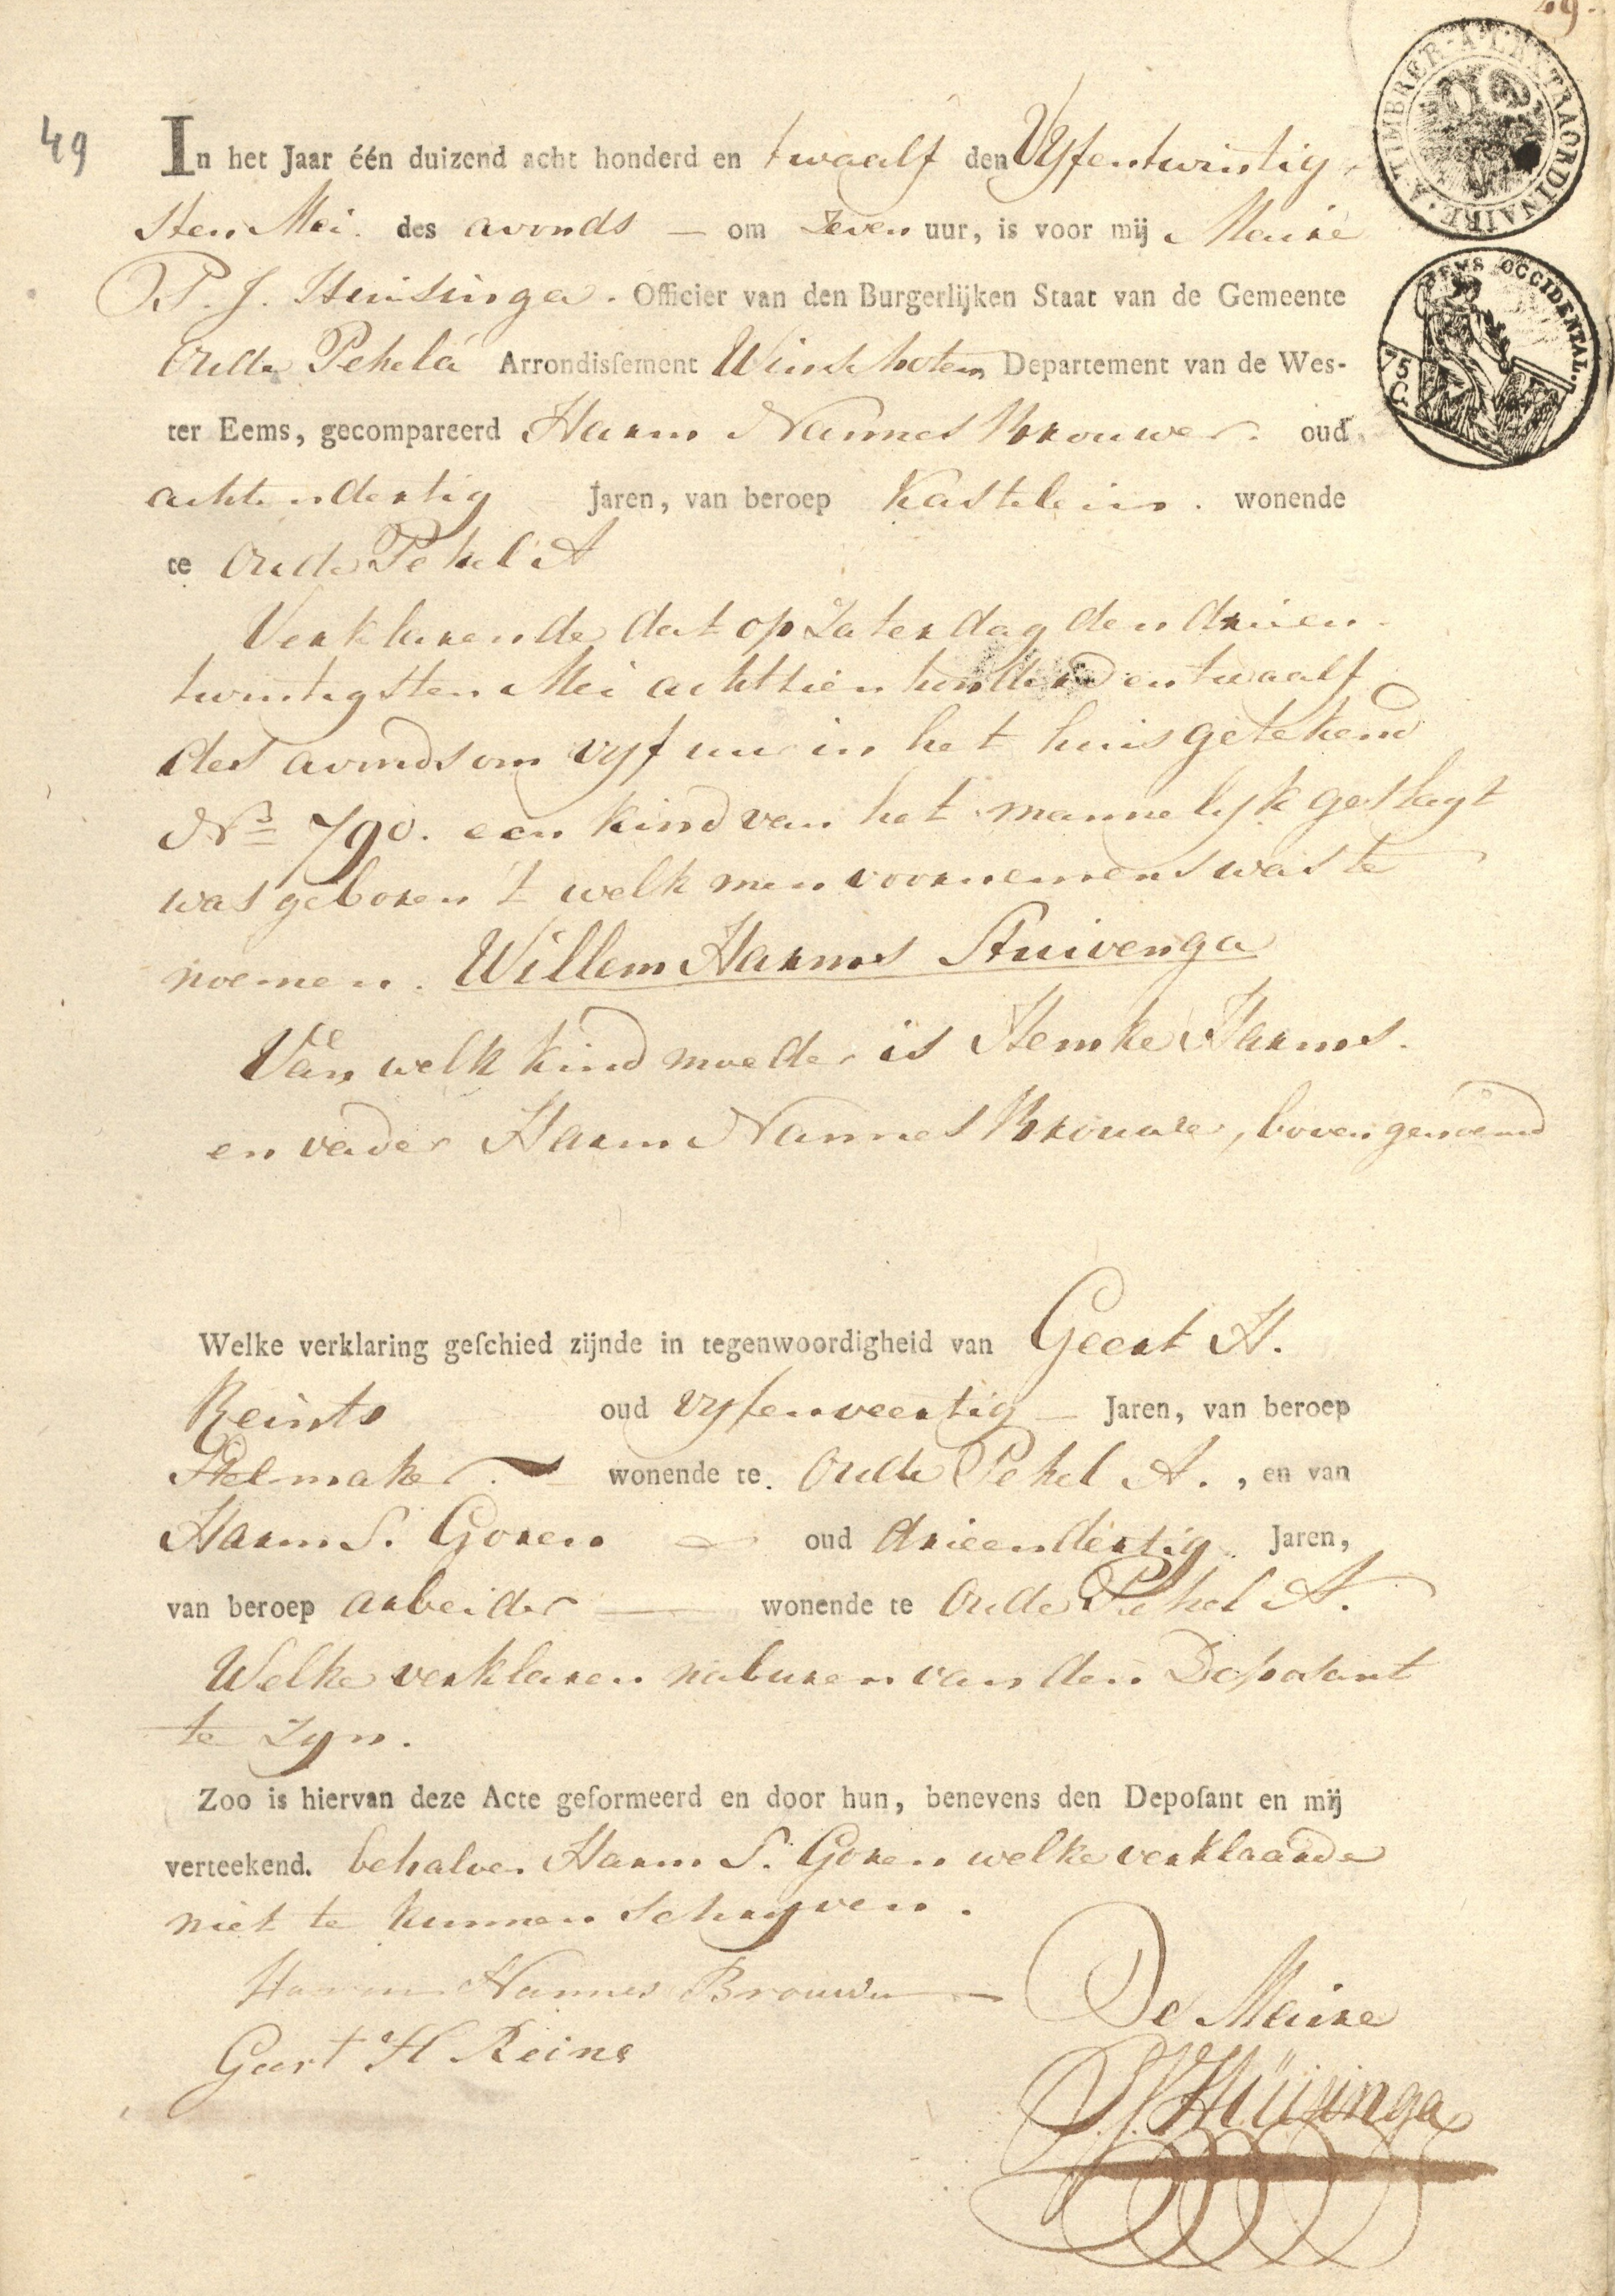 49.
A TIMBRER A L'EXTRAORDINAIRE
EEMS OCCIDENTAL.
75
C.
49 In het Jaar één duizend acht honderd en twaalf den Vyfentwintig
sten Mei. des avonds — om Zeven uur, is voor mij Maire
P. J. Huisinga. Officier van den Burgerlijken Staat van de Gemeente
Oude Pekela Arrondisſement Winschoten Departement van de Wes-
ter Eems, gecompareerd Harm Nannes Brouwer. oud
achtendertig Jaren, van beroep Kastelein. wonende
te Oude Pekel A
Verklarende dat op Zaterdag den drien-
twintigsten Mei achttienhonderd en twaalf
des avonds om vyf uur in het huis getekend
No 790. een kind van het mannelyk geslagt
was geboren 't welk men voornemens was te
noemen. Willem Harms Stuivenga
Van welk kind moeder is Hemke Harms.
en vader Harm Nannes Brouwer, bovengenoemd
Welke verklaring geſchied zijnde in tegenwoordigheid van Geert H.
Reints oud vyfenveertig — Jaren, van beroep
Stelmaker. — wonende te. Oude Pekel A. , en van
Harm S. Goren — oud drieendertig Jaren,
van beroep arbeider — wonende te Oude Pekel A.
Welke verklaren naburen van den Deposant
te zyn.
Zoo is hiervan deze Acte geformeerd en door hun, benevens den Depoſant en mij
verteekend. behalven Harm S. Goren welke verklaarde
niet te kunnen schryven.
Harm Nannes Brouwer —
De Maire
Geert H Reins
P. J. Hüisinga